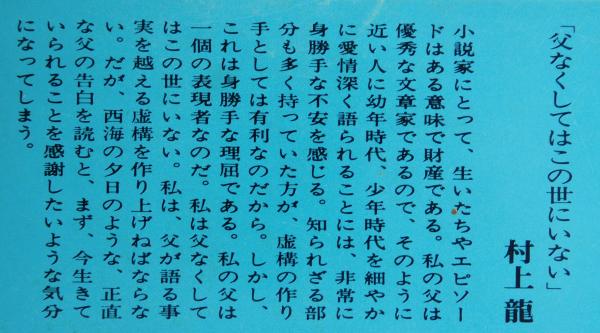 「父なくしてはこの世にいない」
村上龍
小説家にとって、生いたちやエピソー
ドはある意味で財産である。私の父は
優秀な文章家であるので、そのように
近い人に幼年時代、少年時代を細やか
に愛情深く語られることには、非常に
身勝手な不安を感じる。知られざる部
分も多く持っていた方が、虚構の作り
手としては有利なのだから。しかし、
これは身勝手な理屈である。私の父は
一個の表現者なのだ。私は父なくして
はこの世にいない。私は、父が語る事
実を越える虚構を作り上げねばならな
い。だが、西海の夕日のような、正直
な父の告白を読むと、まず、今生きて
いられることを感謝したいような気分
になってしまう。